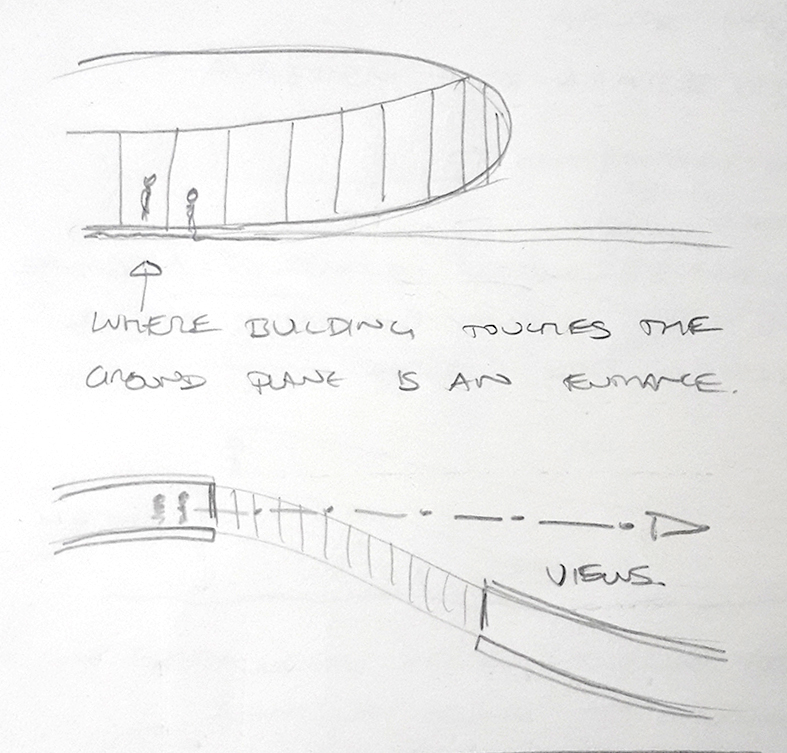 WHERE BUILDING TOUCHES THE
GROUND PLANE IS AN ENTRANCE.
VIEWS.